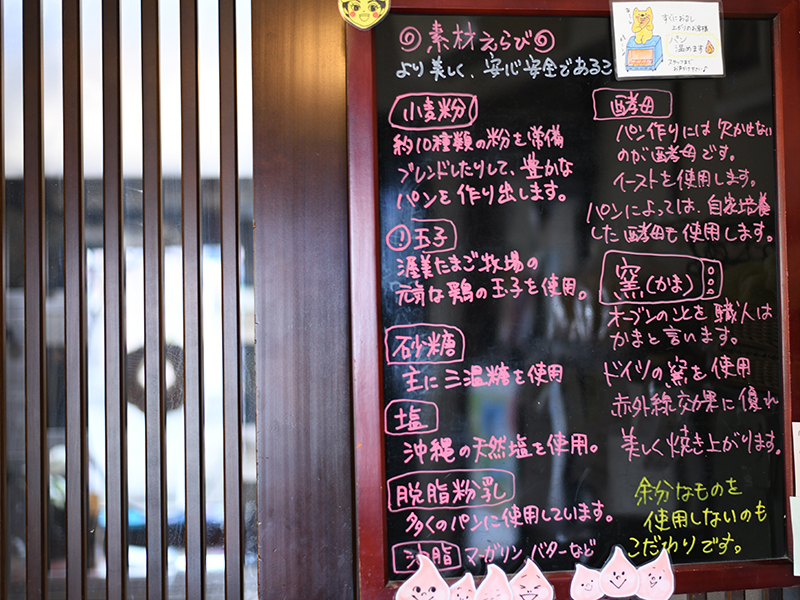 素材えらび
より美しく、安心安全であるこ
小麦粉
約10種類の粉を常備
ブレンドしたりして、豊かな
パンを作り出します。
玉子
渥美たまご牧場の
元気な鶏の玉子を使用。
砂糖
主に三温糖を使用
塩
沖縄の天然塩を使用。
脱脂粉乳
多くのパンに使用しています。
油脂 マーガリン バターなど
酵母
パン作りには欠かせない
のが酵母です。
イーストを使用します。
パンによっては、自家培養
した酵母も使用します。
窯(かま)
オーブンのことを職人は
かまと言います。
ドイツの窯を使用
赤外線効果に優れ
美しく焼き上がります。
余分なものを
使用しないのも
こだわりです。
すぐにおめし
上がりのお客様
パン
温めます
スタッフまで